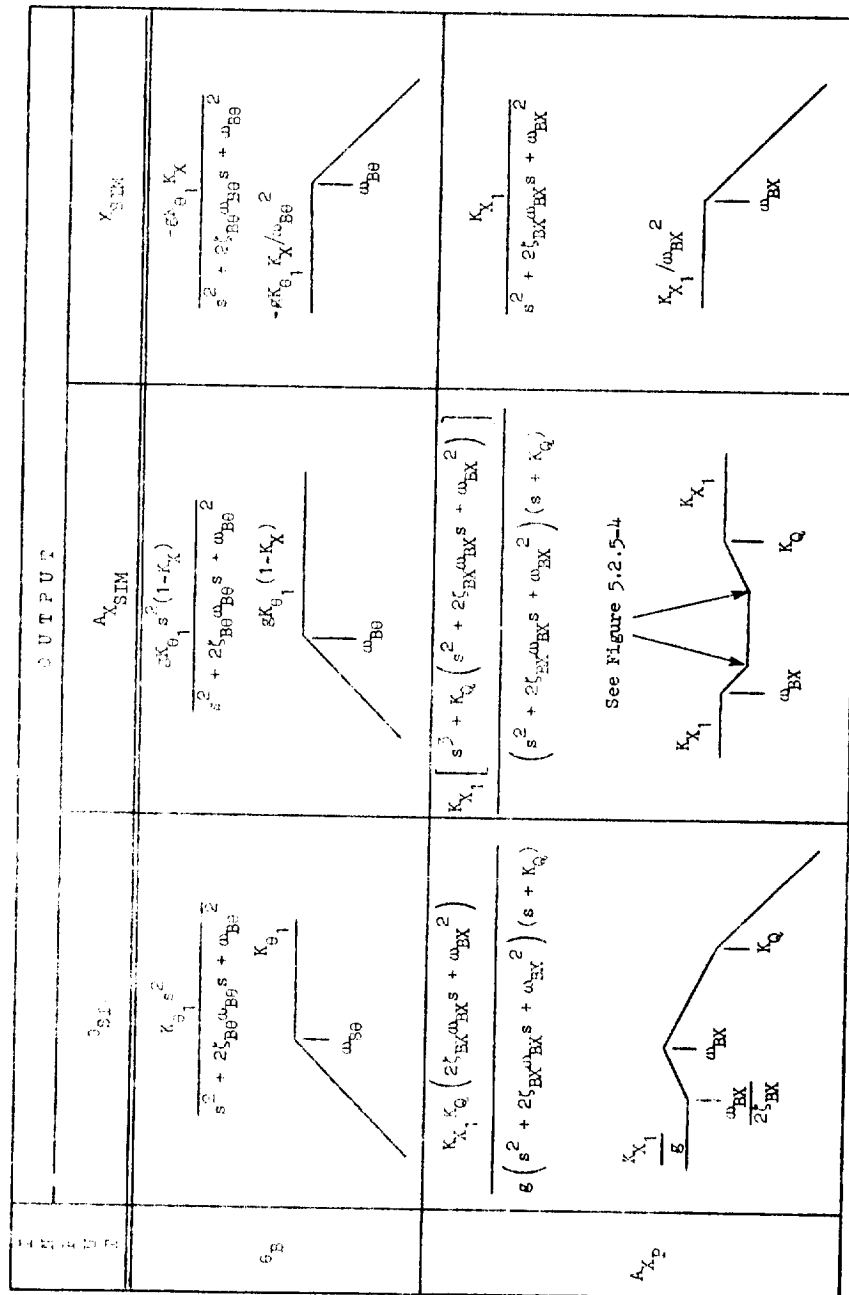 OUTPUT
INPUT
X_SIM
A_X_SIM
θ_B
-gK_θ1 K_X
s^2 + 2ζ_Bθ ω_Bθ s + ω_Bθ^2
-gK_θ1 K_X/ω_Bθ^2
ω_Bθ
gK_θ1 s^2 (1-K_X)
s^2 + 2ζ_Bθ ω_Bθ s + ω_Bθ^2
gK_θ1 (1-K_X)
ω_Bθ
K_θ1 s^2
s^2 + 2ζ_Bθ ω_Bθ s + ω_Bθ^2
K_θ1
ω_Bθ
K_X1 K_Q (2ζ_BX ω_BX s + ω_BX^2)
g (s^2 + 2ζ_BX ω_BX s + ω_BX^2) (s + K_Q)
K_X1
g
ω_BX
2ζ_BX
ω_BX
K_Q
K_X1 [s^3 + K_Q (s^2 + 2ζ_BX ω_BX s + ω_BX^2)]
(s^2 + 2ζ_BX ω_BX s + ω_BX^2) (s + K_Q)
See Figure 5.2.5-4
K_X1
ω_BX
K_Q
K_X1
K_X1
s^2 + 2ζ_BX ω_BX s + ω_BX^2
K_X1/ω_BX^2
ω_BX